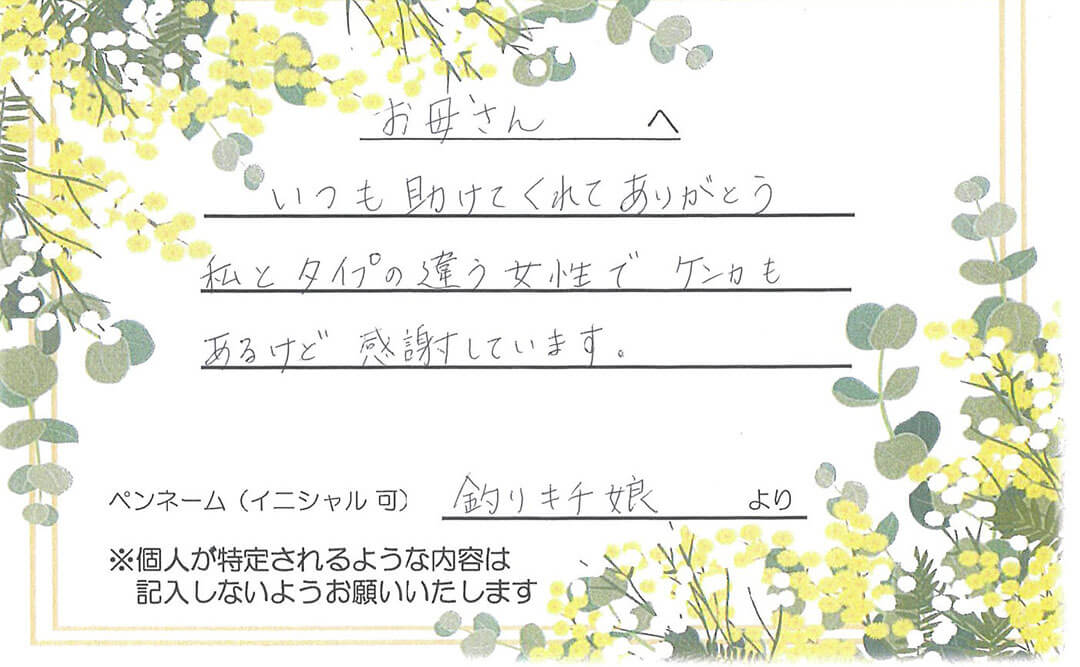 お母さん へ
いつも助けてくれてありがとう
私とタイプの違う女性で ケンカも
あるけど 感謝しています。
ペンネーム（イニシャル 可） 釣りキチ娘 より
※個人が特定されるような内容は
記入しないようお願いいたします